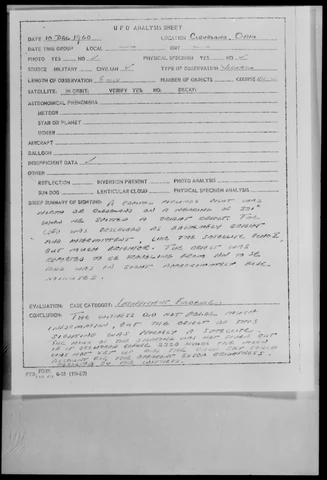 UFO ANALYSIS SHEET
DATE 10 DEC 1960 LOCATION CLEVELAND, OHIO
DATE TIME GROUP LOCAL GMT
PHOTO YES NO ✓ PHYSICAL SPECIMEN YES NO ✓
SOURCE MILITARY CIVILIAN ✓ TYPE OF OBSERVATION VISUAL
LENGTH OF OBSERVATION NUMBER OF OBJECTS COURSE
SATELLITE: IN ORBIT: VERIFY YES NO DECAY:
ASTRONOMICAL PHENOMENA
METEOR
STAR OR PLANET
OTHER
AIRCRAFT
BALLOON
INSUFFICIENT DATA ✓
OTHER
REFLECTION INVERSION PRESENT PHOTO ANALYSIS
SUN DOG LENTICULAR CLOUD PHYSICAL SPECIMEN ANALYSIS
BRIEF SUMMARY OF SIGHTING: A PILOT WAS
NORTH OF CLEVELAND ON A HEADING OF
WHEN HE SIGHTED A BRIGHT OBJECT. THE
UFO WAS DESCRIBED AS EXTREMELY BRIGHT
AND INTERMITTENT, LIKE THE SATELLITE ECHO I
BUT MUCH BRIGHTER. THE OBJECT WAS
REPORTED TO BE TRAVELING FROM NW TO SE
AND WAS IN SIGHT APPROXIMATELY FIVE
MINUTES.
EVALUATION: CASE CATEGORY:
CONCLUSION: THE WITNESS DID NOT MUCH
INFORMATION, BUT THE OBJECT OF THIS
SIGHTING WAS A SATELLITE.
THE HOUR OF THE SIGHTING WAS NOT GIVEN BUT
IF IT OCCURRED 2330 HOURS THE MOON
WAS NOT YET UP AND THE DARK SKY COULD
ACCOUNT FOR THE APPARENT EXTRA BRIGHTNESS
BY THE WITNESS.
FORM